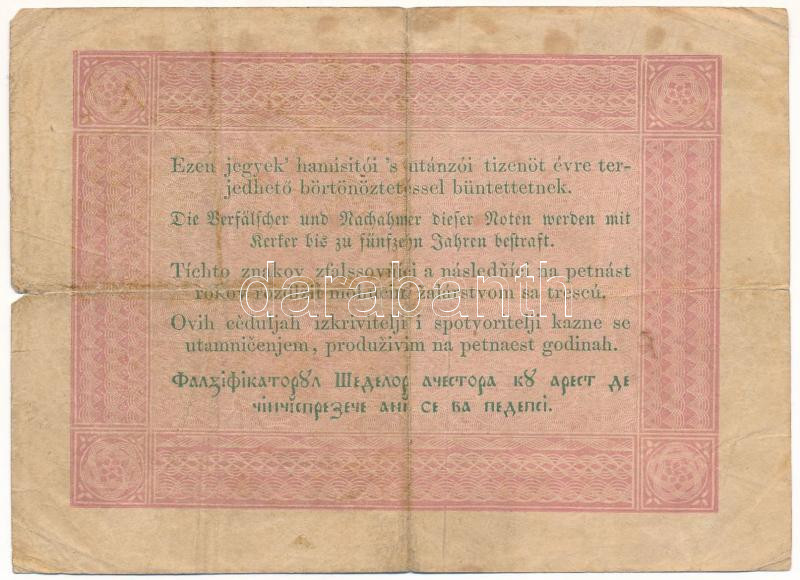 Ezen jegyek' hamisitói 's utánzói tizenöt évre ter-
jedhető börtönöztetéssel büntettetnek.
Die Verfälscher und Nachahmer dieser Noten werden mit
Kerker bis zu fünfzehn Jahren bestraft.
Tíchto znakov zfalssovnjci a následňjci na petnást
rokov trescú.
Ovih cèduljah izkrivitelji i spotvoritelji kazne se
utamničenjem, produživim na petnaest godinah.
Фалзіфікаторꙋл Шеделор ачестора кꙋ арест де
чінчіспрезече ані се ва педепсі.
darabanth